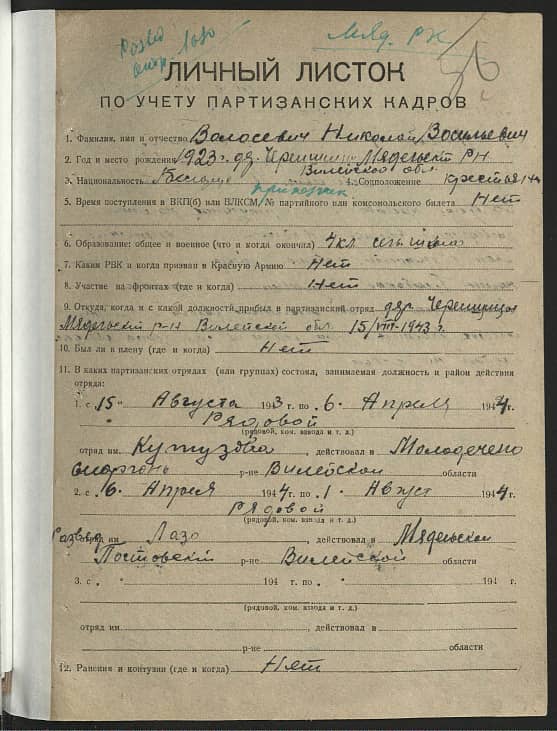 Развед
Лазо
Мяд. РК
ЛИЧНЫЙ ЛИСТОК
ПО УЧЕТУ ПАРТИЗАНСКИХ КАДРОВ
1. Фамилия, имя и отчество Волосевич Николай Васильевич
2. Год и место рождения 1923 г. дер. Мядельский РН
Вилейской обл.
3. Национальность 4. Соцположение
5. Время поступления в ВКП(б) или ВЛКСМ, № партийного или комсомольского билета Нет
6. Образование: общее и военное (что и когда окончил) 4 кл
7. Каким РВК и когда призван в Красную Армию Нет
8. Участие на фронтах (где и когда) Нет
9. Откуда, когда и с какой должности прибыл в партизанский отряд дер.
Мядельский р-н Вилейской обл. 15/VIII-1943 г
10. Был ли в плену (где и когда) Нет
11. В каких партизанских отрядах (или группах) состоял, занимаемая должность и район действия
отряда:
1. с „15" Августа 1943 г. по „6 Апреля 1944 г.
Рядовой
(рядовой, ком. взвода и т. д.)
отряд им. Кутузова действовал в
Сморгонь р-не Вилейской области
2. с „6. Апреля 1944 г. по „1. Август 1944 г.
Рядовой
(рядовой, ком. взвода и т. д.)
Развед отряд им Лазо, действовал в Мядельском
Поставский р-не Вилейской области
3. с „ 194 г. по „ 194 г.
(рядовой, ком. взвода и т. д.)
отряд им. , действовал в
р-не области
12. Ранения и контузии (где и когда) Нет